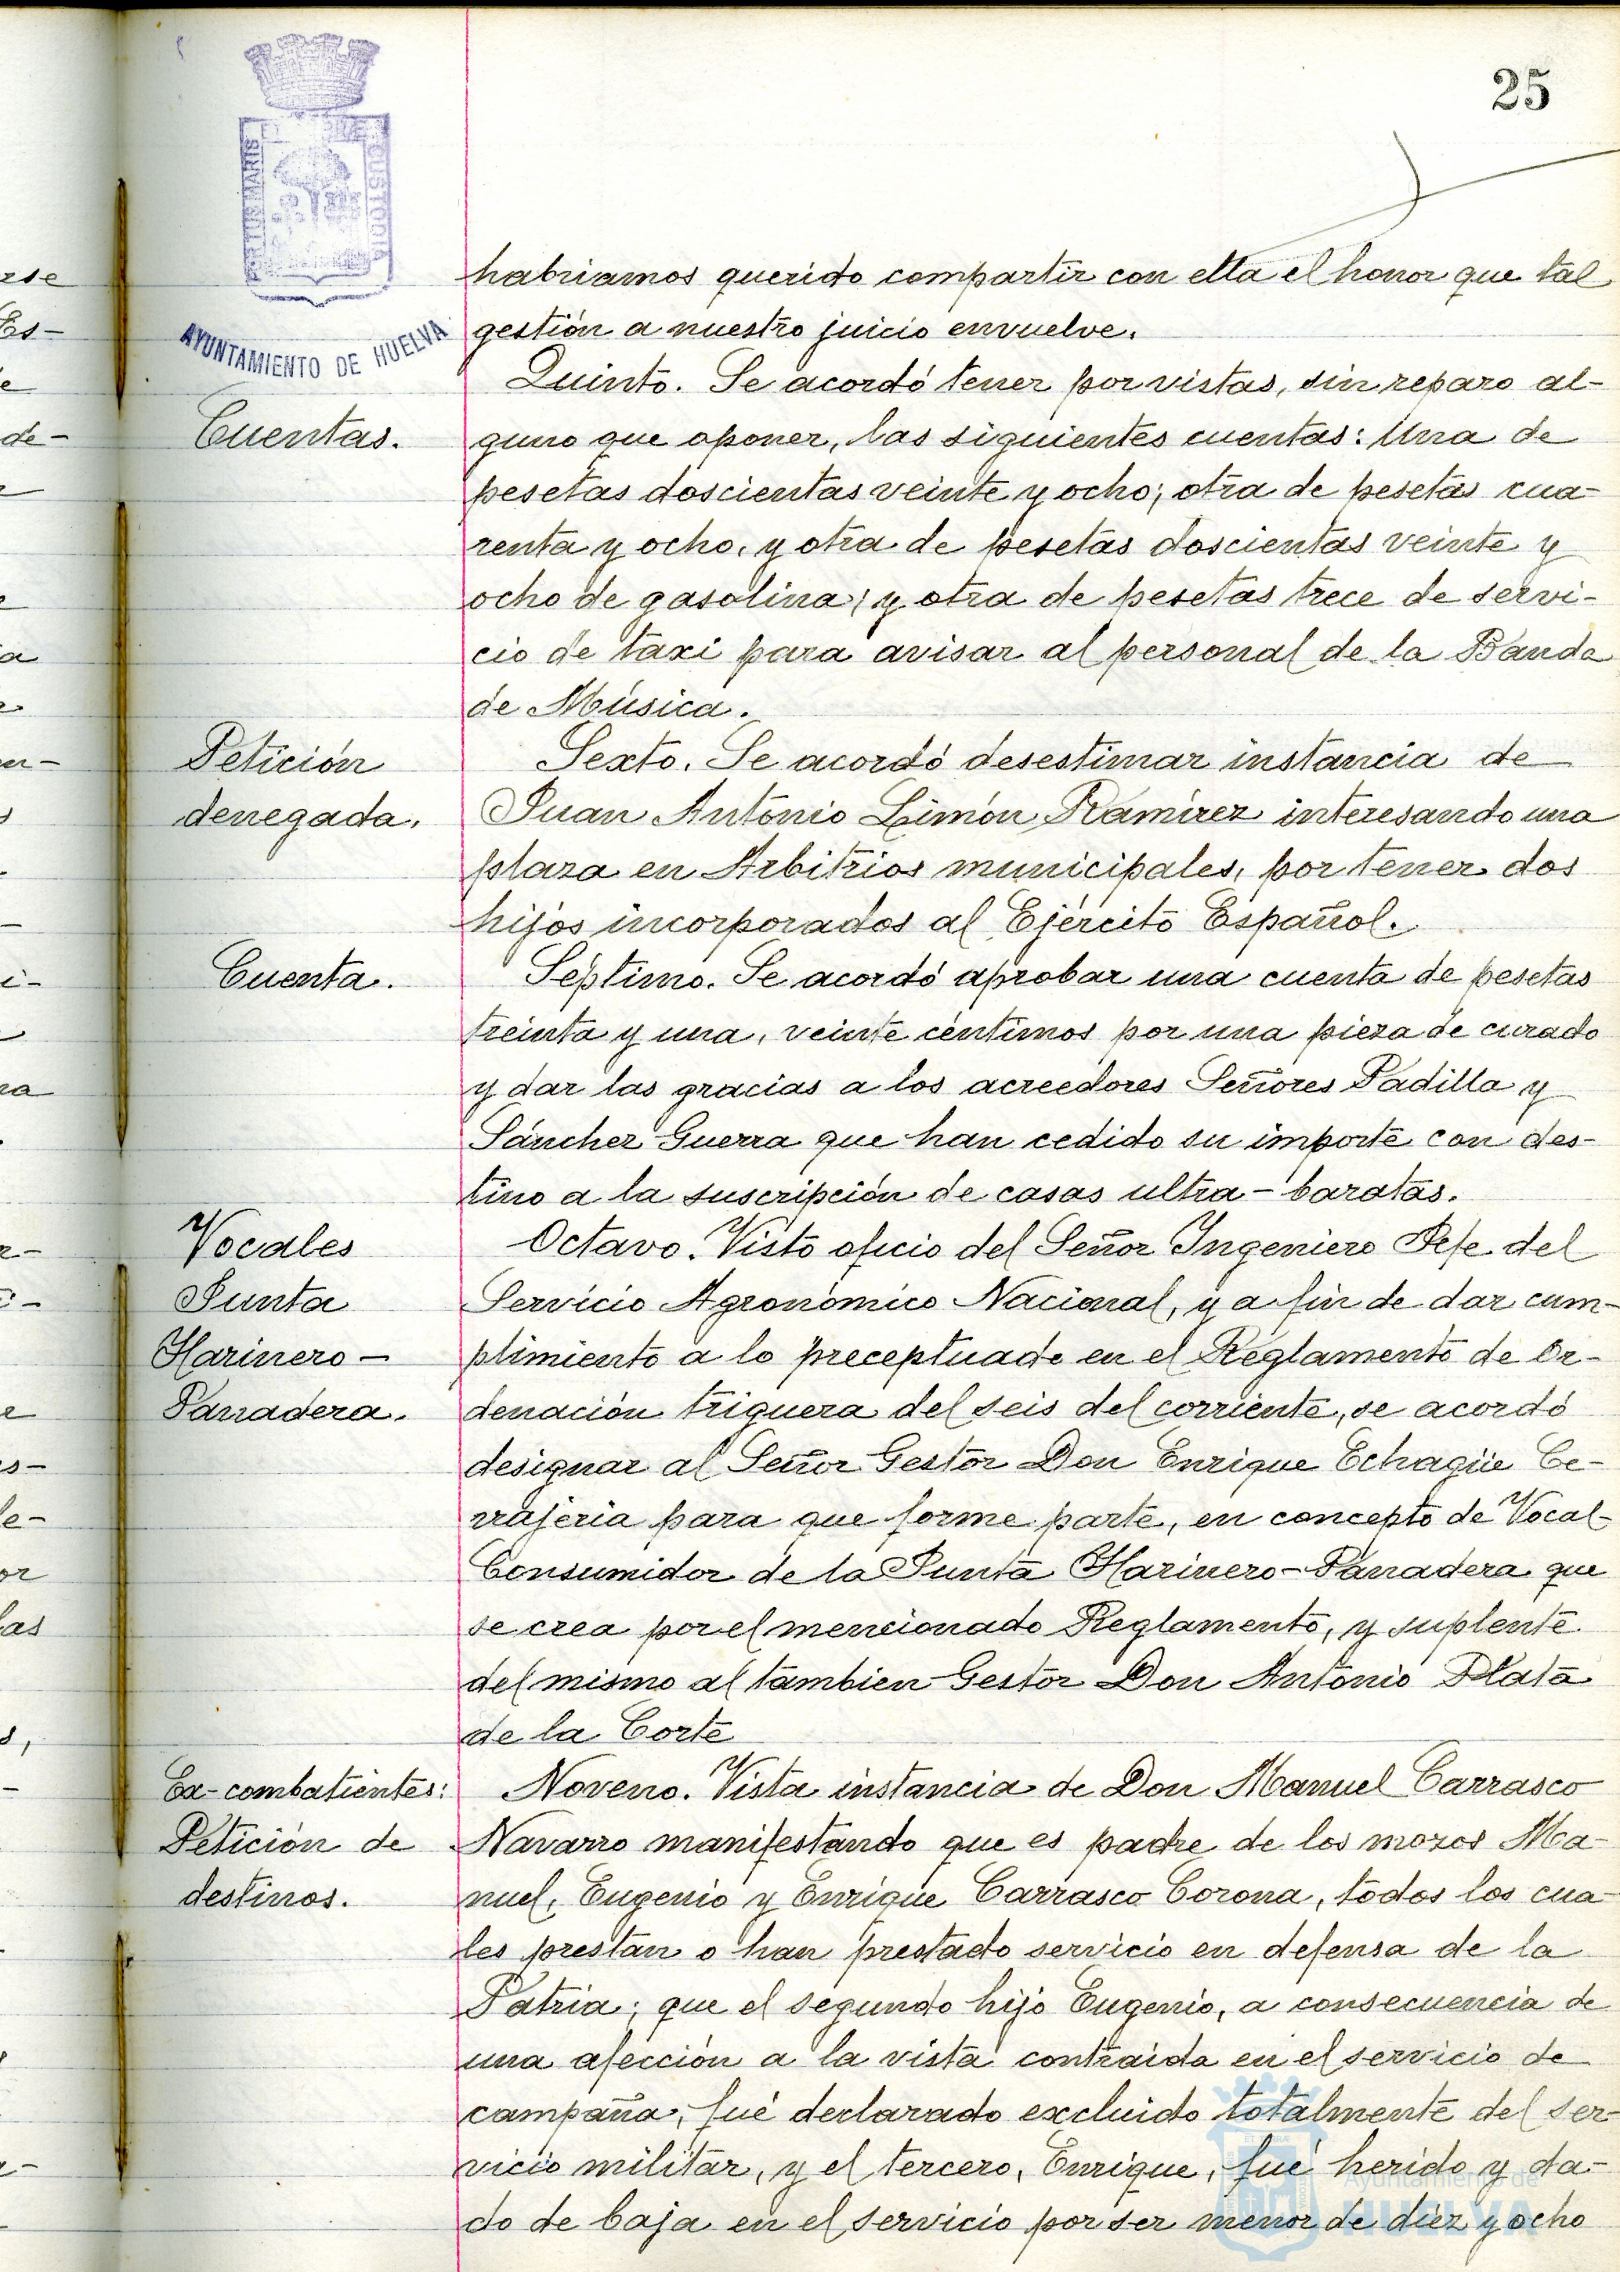 25
PORTUS MARIS
ET TERRAE
CUSTODIA
AYUNTAMIENTO DE HUELVA
habriamos querido compartir con ella el honor que tal
gestión a nuestro juicio envuelve.
Cuentas.
Quinto. Se acordó tener por vistas, sin reparo al-
guno que oponer, las siguientes cuentas: Una de
pesetas doscientas veinte y ocho; otra de pesetas cua-
renta y ocho, y otra de pesetas doscientas veinte y
ocho de gasolina; y otra de pesetas trece de servi-
cio de taxi para avisar al personal de la Banda
de Música.
Petición
denegada.
Sexto. Se acordó desestimar instancia de
Juan António Limón Ramírez interesando una
plaza en Arbitrios municipales, por tener dos
hijos incorporados al Ejército Español.
Cuenta.
Séptimo. Se acordó aprobar una cuenta de pesetas
treinta y una, veinte céntimos por una pieza de curado
y dar las gracias a los acreedores Señores Padilla y
Sánchez Guerra que han cedido su importe con des-
tino a la suscripción de casas ultra-baratas.
Vocales
Junta
Harinero-
Panadera.
Octavo. Visto oficio del Señor Ingeniero Jefe del
Servicio Agronómico Nacional, y a fin de dar cum-
plimiento a lo preceptuado en el Reglamento de Or-
denación triguera del seis del corriente, se acordó
designar al Señor Gestor Don Enrique Echagüe Ce-
rrajeria para que forme parte, en concepto de Vocal-
Consumidor de la Junta Harinero-Panadera que
se crea por el mencionado Reglamento, y suplente
del mismo al tambien Gestor Don António Plata
de la Corte
Ex-combatientes:
Petición de
destinos.
Noveno. Vista instancia de Don Manuel Carrasco
Navarro manifestando que es padre de los mozos Ma-
nuel, Eugenio y Enrique Carrasco Corona, todos los cua-
les prestan o han prestado servicio en defensa de la
Patria; que el segundo hijo Eugenio, a consecuencia de
una afección a la vista contraida en el servicio de
campaña, fué declarado excluido totalmente del ser-
vicio militar, y el tercero, Enrique, fué herido y da-
do de baja en el servicio por ser menor de diez y ocho
Ayuntamiento de
HUELVA